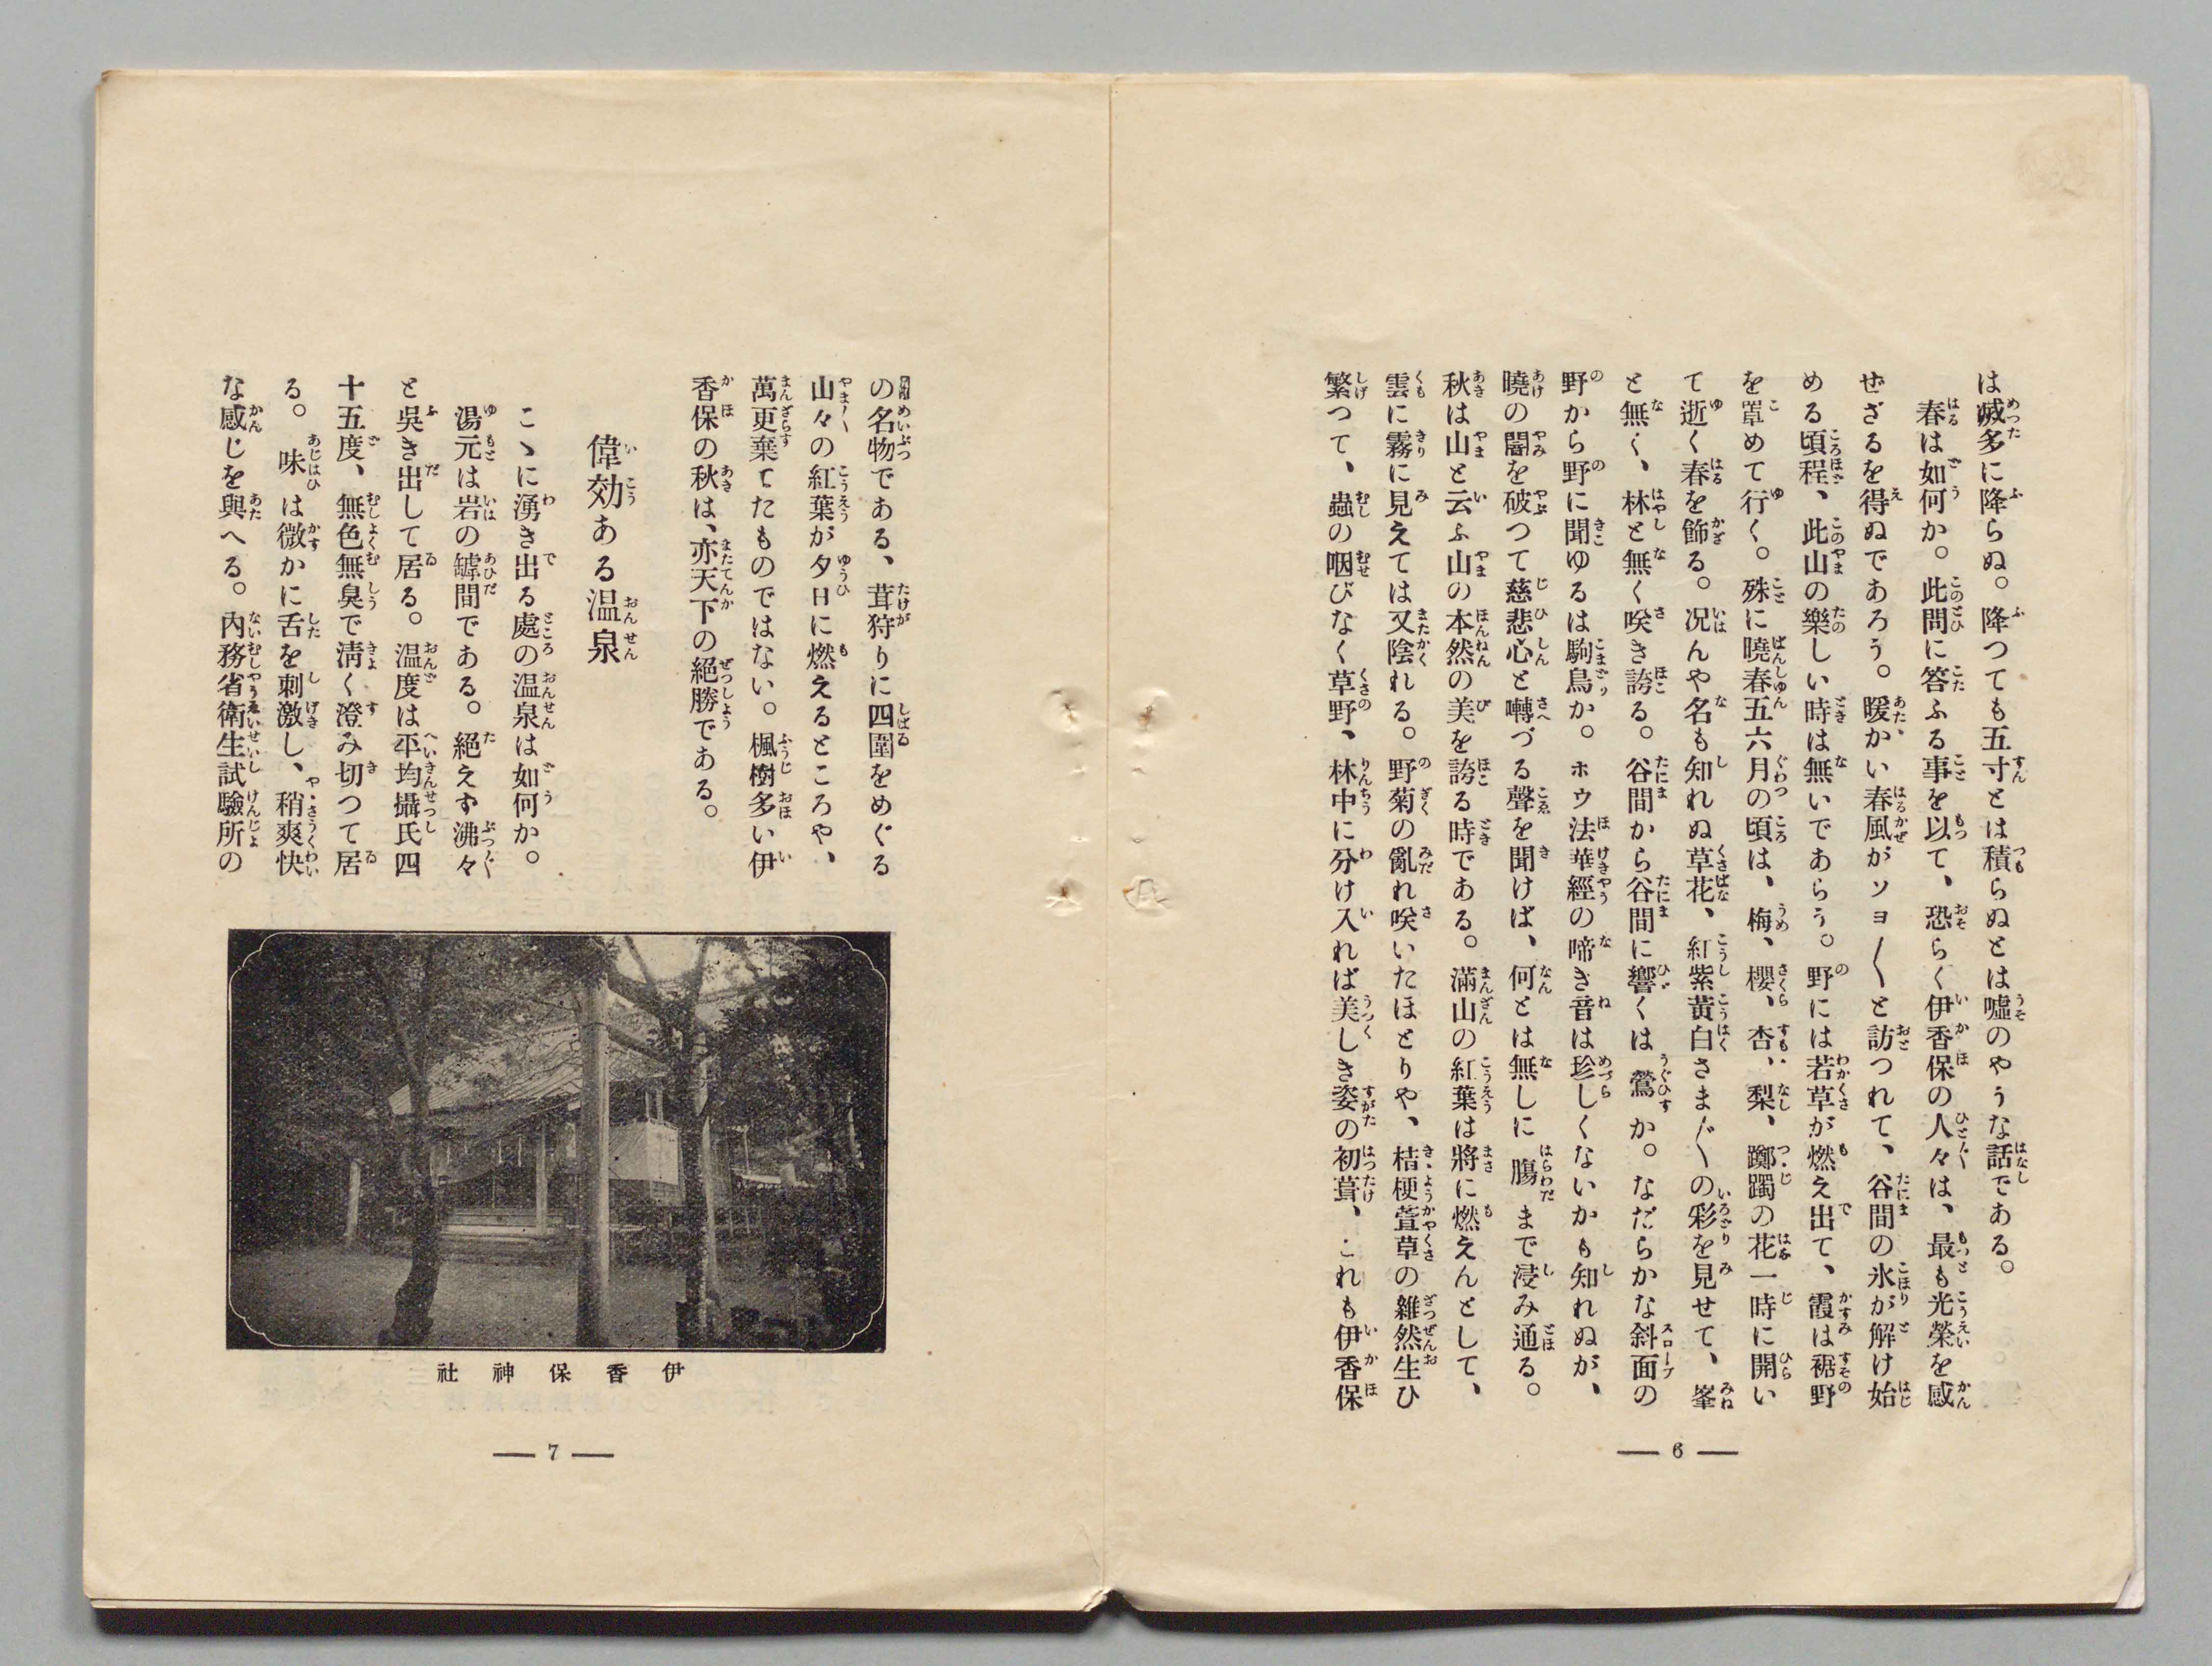 は滅多に降らぬ。降つても五寸とは積らぬとは噓のやうな話である。
春は如何か。此問に答ふる事を以て、恐らく伊香保の人々は、最も光榮を感
ぜざるを得ぬであろう。暖かい春風がソヨ〱と訪つれて、谷間の氷が解け始
める頃程、此山の樂しい時は無いであらう。野には若草が燃え出て、霞は裾野
を罩めて行く。殊に曉春五六月の頃は、梅、櫻、杏、梨、躑躅の花一時に開い
て逝く春を飾る。況んや名も知れぬ草花、紅紫黃白さま〲の彩を見せて、峯
と無く、林と無く咲き誇る。谷間から谷間に響くは鶯か。なだらかな斜面の
野から野に聞ゆるは駒鳥か。ホウ法華經の啼き音は珍しくないかも知れぬが、
曉の闇を破つて慈悲心と囀づる聲を聞けば、何とは無しに膓まで浸み通る。
秋は山と云ふ山の本然の美を誇る時である。滿山の紅葉は將に燃えんとして、
雲に霧に見えては又陰れる。野菊の亂れ咲いたほとりや、桔梗萱草の雜然生ひ
繁つて、蟲の咽びなく草野、林中に分け入れば美しき姿の初茸、これも伊香保
— 6 —
の名物である、茸狩りに四圍をめぐる
山々の紅葉が夕日に燃えるところや、
萬更棄てたものではない。楓樹多い伊
香保の秋は、亦天下の絕勝である。
偉効ある温泉
こゝに湧き出る處の温泉は如何か。
湯元は岩の罅間である。絕えず沸々
と吳き出して居る。温度は平均攝氏四
十五度、無色無臭で淸く澄み切つて居
る。味は微かに舌を刺激し、稍爽快
な感じを與へる。內務省衛生試驗所の
伊香保神社
— 7 —